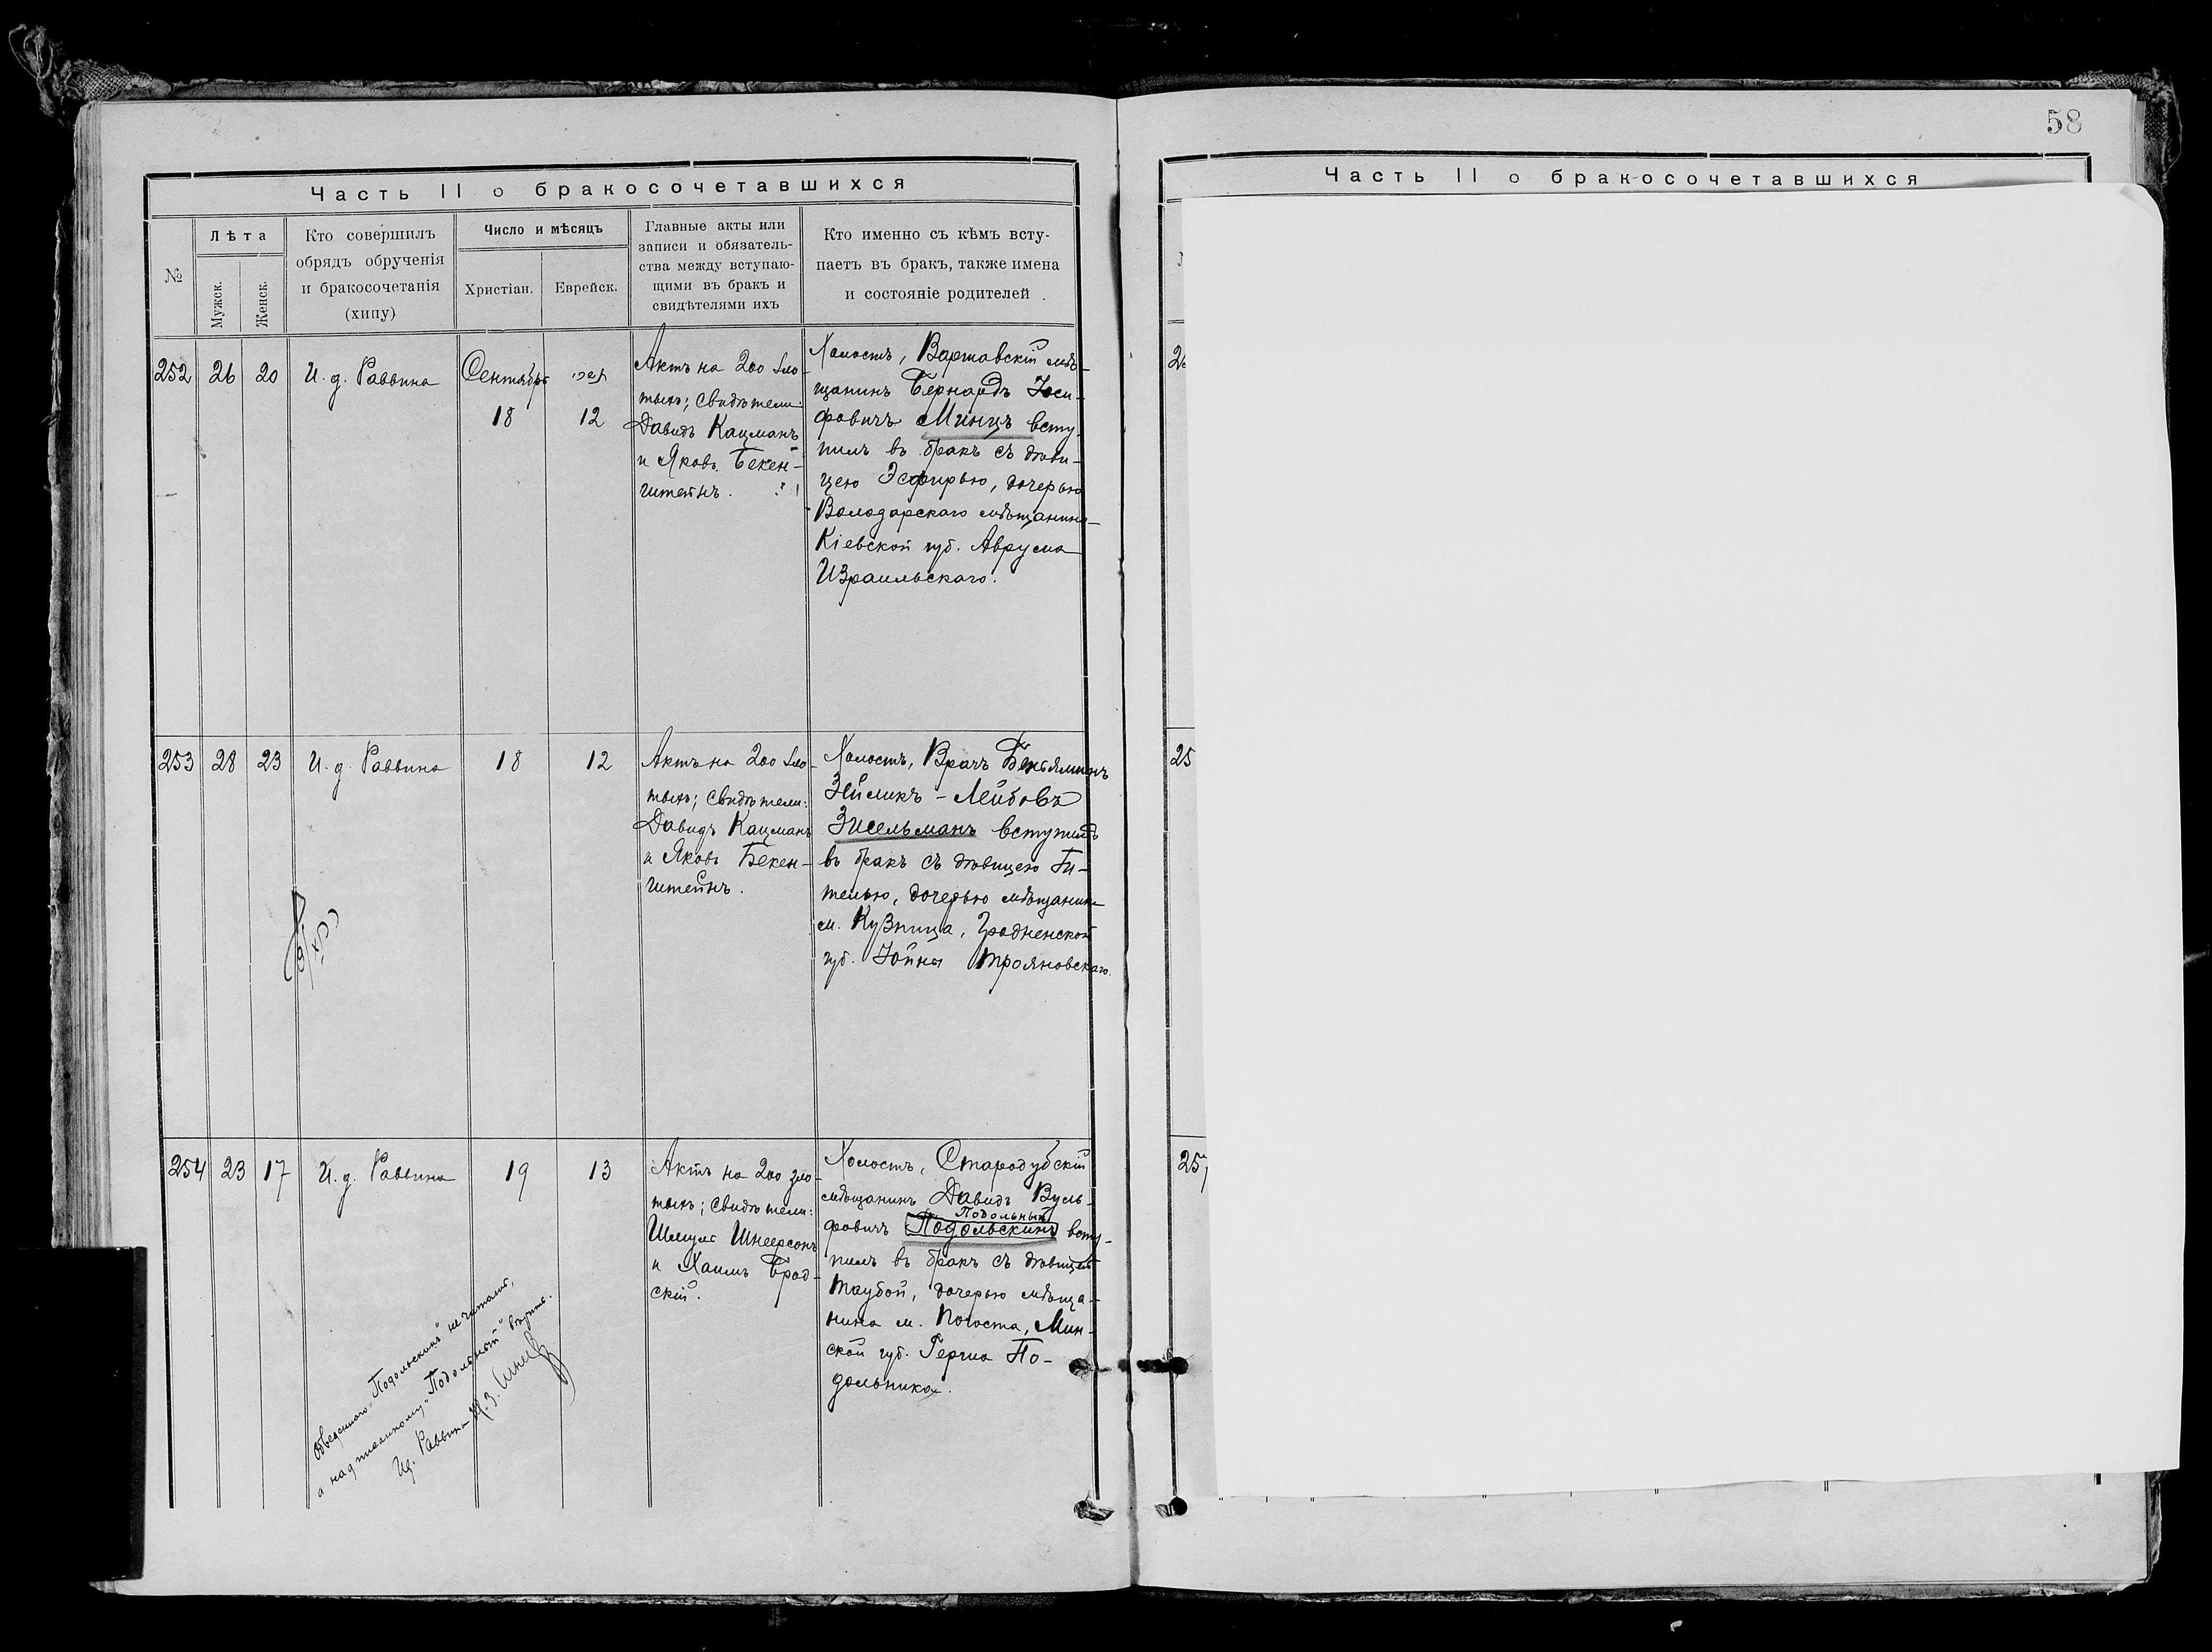 58
Часть II о бракосочетавшихся
№
Лѣта
Мужск.
Женск.
Кто совершилъ
обрядъ обрученія
и бракосочетанія
(хипу)
Число и мѣсяцъ
Христіан.
Еврейск.
Главные акты или
записи и обязатель-
ства между вступаю-
щими въ бракъ и
свидѣтелями ихъ
Кто именно съ кѣмъ всту-
паетъ въ бракъ, также имена
и состояніе родителей
252
26
20
И. д. Раввина
Сентябрь
18
12
Актъ на 200 зло-
тыхъ; свидѣтели:
Давидъ Кацманъ
и Яковъ Бекен-
штейнъ.
Холостъ, Варшавскій мѣ-
щанинъ Бернардъ Іоси-
фовичъ Минцъ всту-
пилъ въ бракъ съ дѣви-
цею Эсфирью, дочерью
Володарскаго мѣщанина
Кіевской губ. Аврума
Израильскаго.
253
28
23
И. д. Раввина
18
12
Актъ на 200 зло-
тыхъ; свидѣтели:
Давидъ Кацманъ
и Яковъ Бекен-
штейнъ.
Холостъ, Врачъ Беньяминъ
Зейликъ-Лейбовъ
Зисельманъ вступилъ
въ бракъ съ дѣвицею Ги-
телью, дочерью мѣщанина
м. Кузница, Гродненской
губ. Іойны Трояновскаго.
254
23
17
И. д. Раввина
19
13
Актъ на 200 зло-
тыхъ; свидѣтели:
Шмуль Шнеерсонъ
и Хаимъ Брод-
скій.
Холостъ, Стародубскій
мѣщанинъ Давидъ Вуль-
Подольный
фовичъ Подольскинъ всту-
пилъ въ бракъ съ дѣвицей
Таубой, дочерью мѣща-
нина м. Погоста, Мин-
ской губ. Герша По-
дольника.
Обведеннаго „Подольскинъ" не читать,
а надписанному „Подольный" вѣрить.
И.д. Раввина
Часть II о бракосочетавшихся
25
25